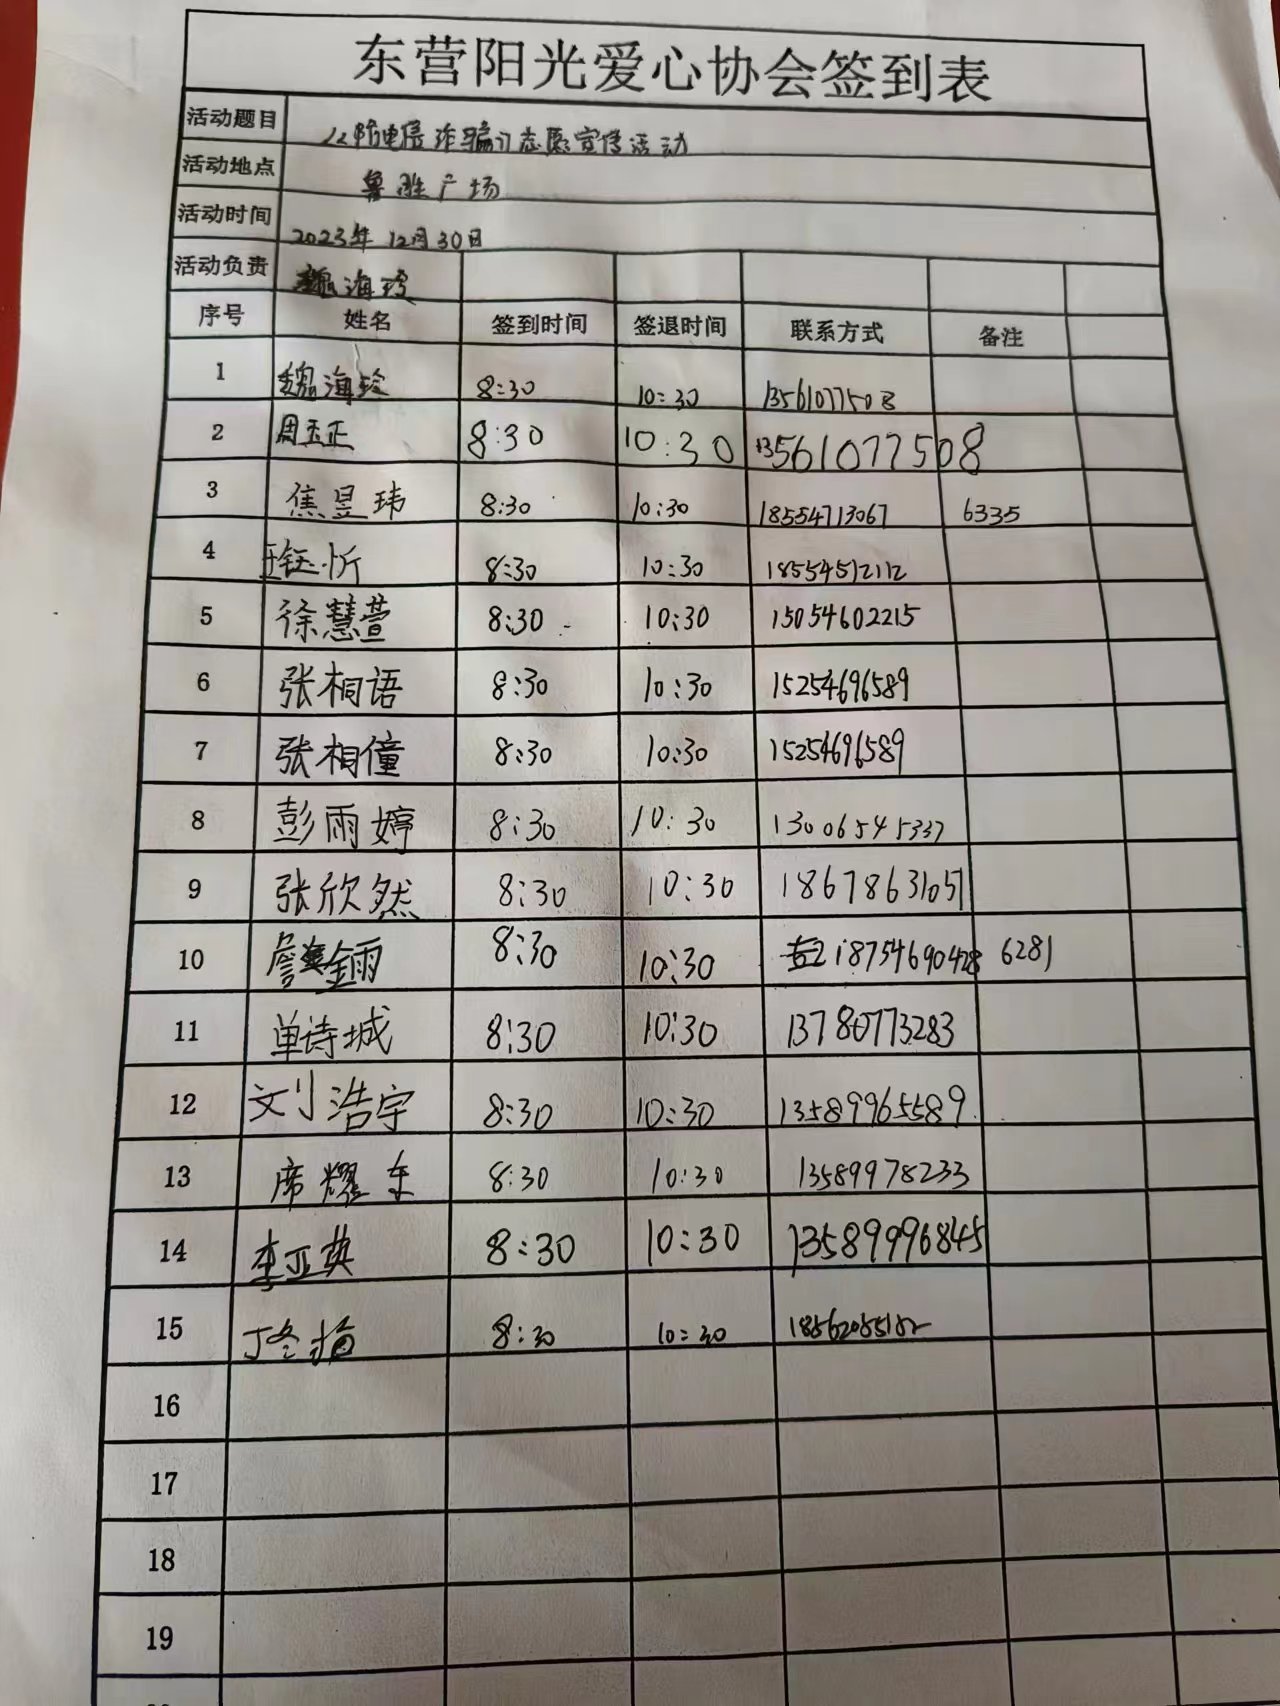 东营阳光爱心协会签到表
活动题目 《防电信诈骗》志愿宣传活动
活动地点 鲁胜广场
活动时间 2023年12月30日
活动负责 魏海玲
序号 姓名 签到时间 签退时间 联系方式 备注
1 魏海玲 8:30 10:30 13561077508
2 周玉正 8:30 10:30 13561077508
3 焦昱玮 8:30 10:30 18554713067 6335
4 王钰忻 8:30 10:30 18554512112
5 徐慧萱 8:30 10:30 15054602215
6 张桐语 8:30 10:30 15254696589
7 张相僮 8:30 10:30 15254696589
8 彭雨婷 8:30 10:30 13006545337
9 张欣然 8:30 10:30 18678631051
10 詹金雨 8:30 10:30 18754690428 6281
11 单诗城 8:30 10:30 13780773283
12 刘浩宇 8:30 10:30 13589965589
13 席耀东 8:30 10:30 13589978233
14 李亚英 8:30 10:30 13589996845
15 8:30 10:30
16
17
18
19